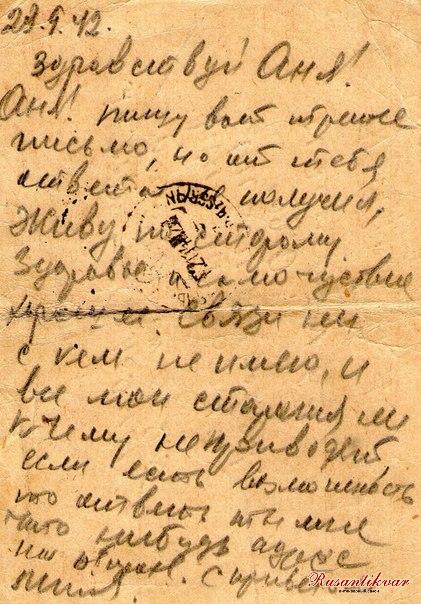 28.9.42.
Здравствуй Аня!
Аня! пишу вот третье
письмо, но от тебя
ответа не получил,
Живу по старому
Здоровье и самочувствие
хорошее. Связи ни
с кем не имею, и
все мои старания ни
к чему неприводят
если есть возможность
то ответь
что нибудь адрес
на обороте. С приветом
Rusantikvar